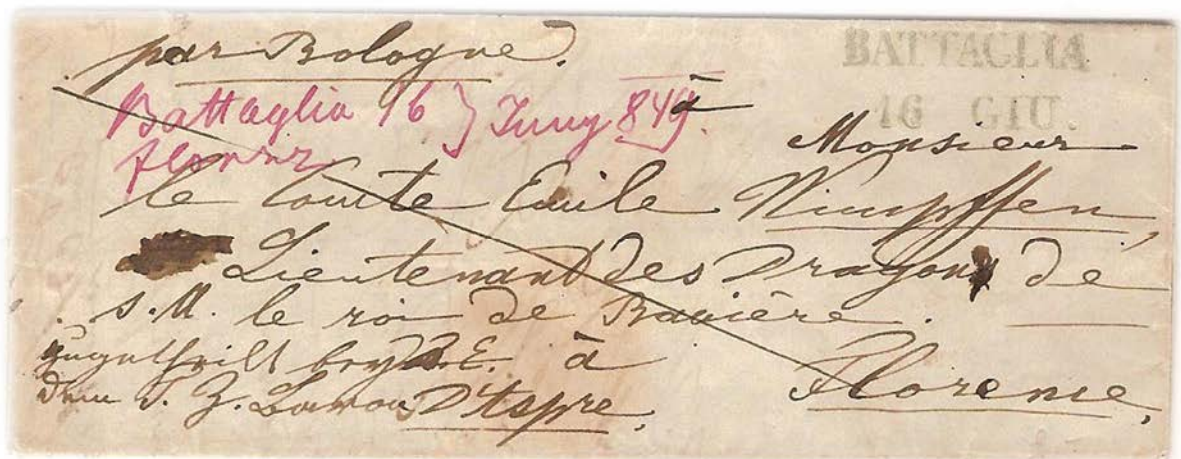 par Bologne.
BATTAGLIA
16 GIU.
Battaglia 16 } Juny 849.
florenz
à
Monsieur
le Comte Emile Wimpffen,
Lieutenant des Dragons de
S.M. le roi de Bavière.
zugetheilt bey S.E. à
dem F. Z. D'Aspre.
Florence,